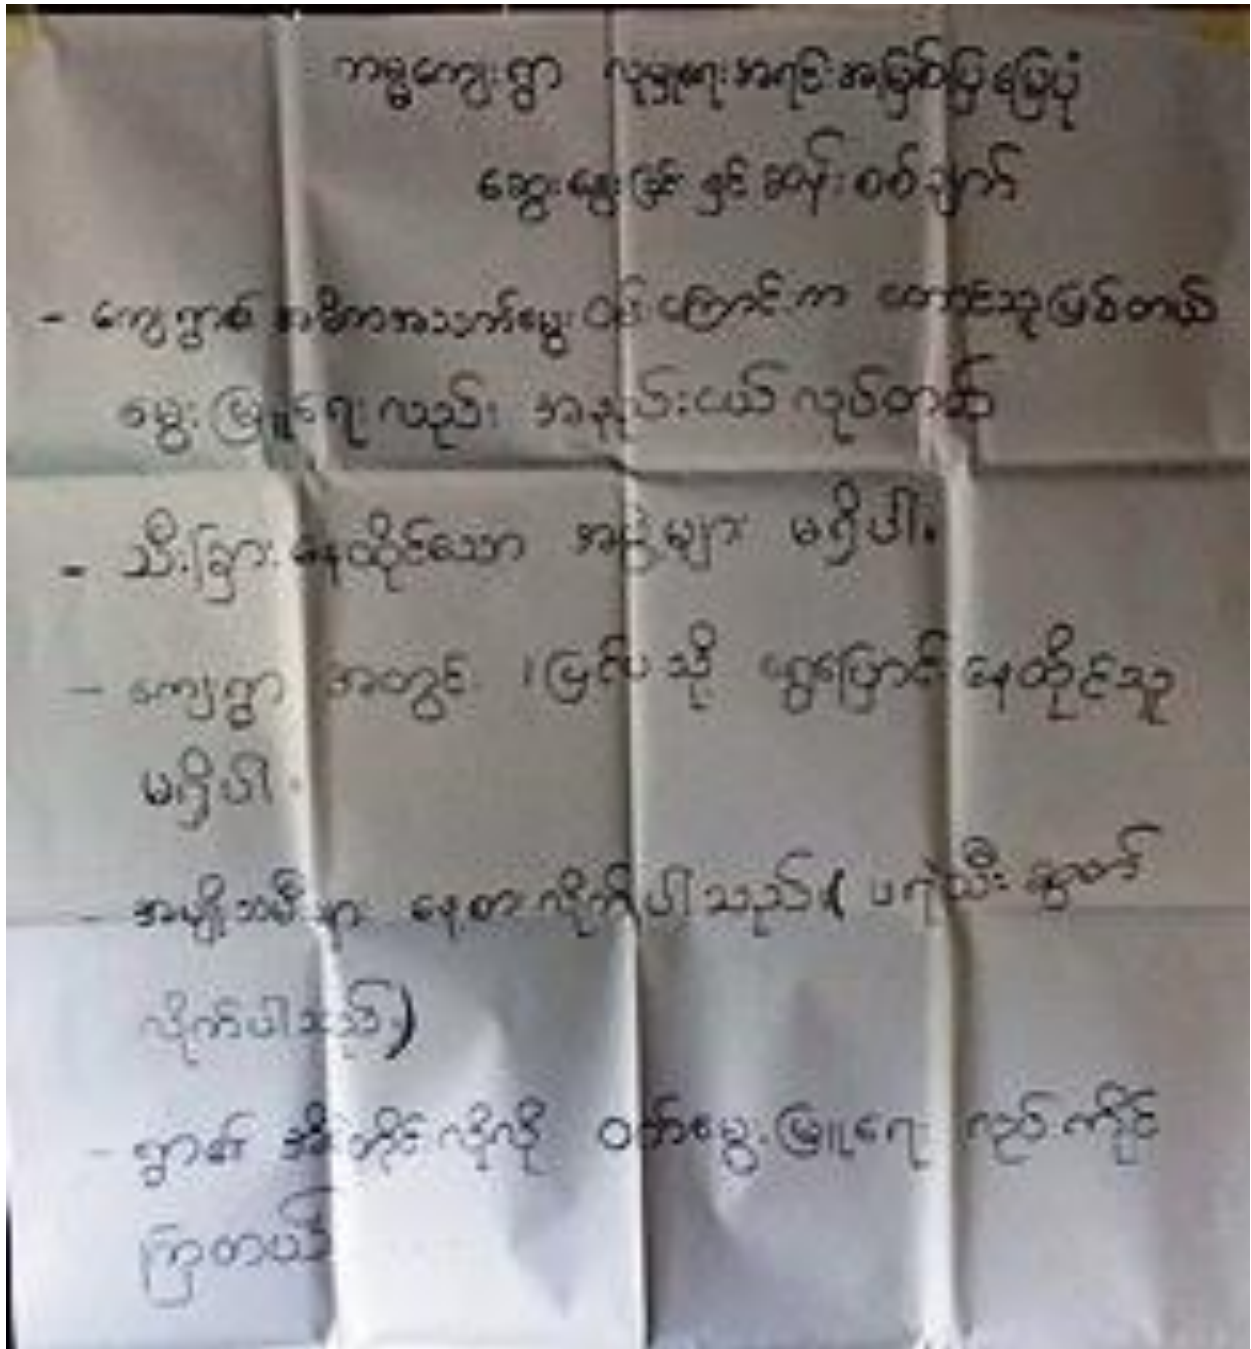 ကမ္မကျေးရွာ လူမှုရေးအရင်းအမြစ်ပြမြေပုံ
ဆွေးနွေးခြင်း နှင့် ဆန်းစစ်ချက်
- ကျေးရွာ၏ အဓိကအသက်မွေးဝမ်းကြောင်းက တောင်သူဖြစ်တယ်
မွေးမြူရေးလည်း အနည်းငယ် လုပ်တယ်
- သီးခြားနေထိုင်သော အုပ်စုများ မရှိပါ။
- ကျေးရွာ အတွင်း ပြင်ပသို့ ရွှေ့ပြောင်းနေထိုင်သူ
မရှိပါ။
- အမျိုးသမီးများ နေ့စားလိုက်ပါသည်။ (
လိုက်ပါသည်။)
- ရွာ၏ အိမ်တိုင်းလိုလို ဝက်မွေးမြူရေး လုပ်ကိုင်
ကြတယ်